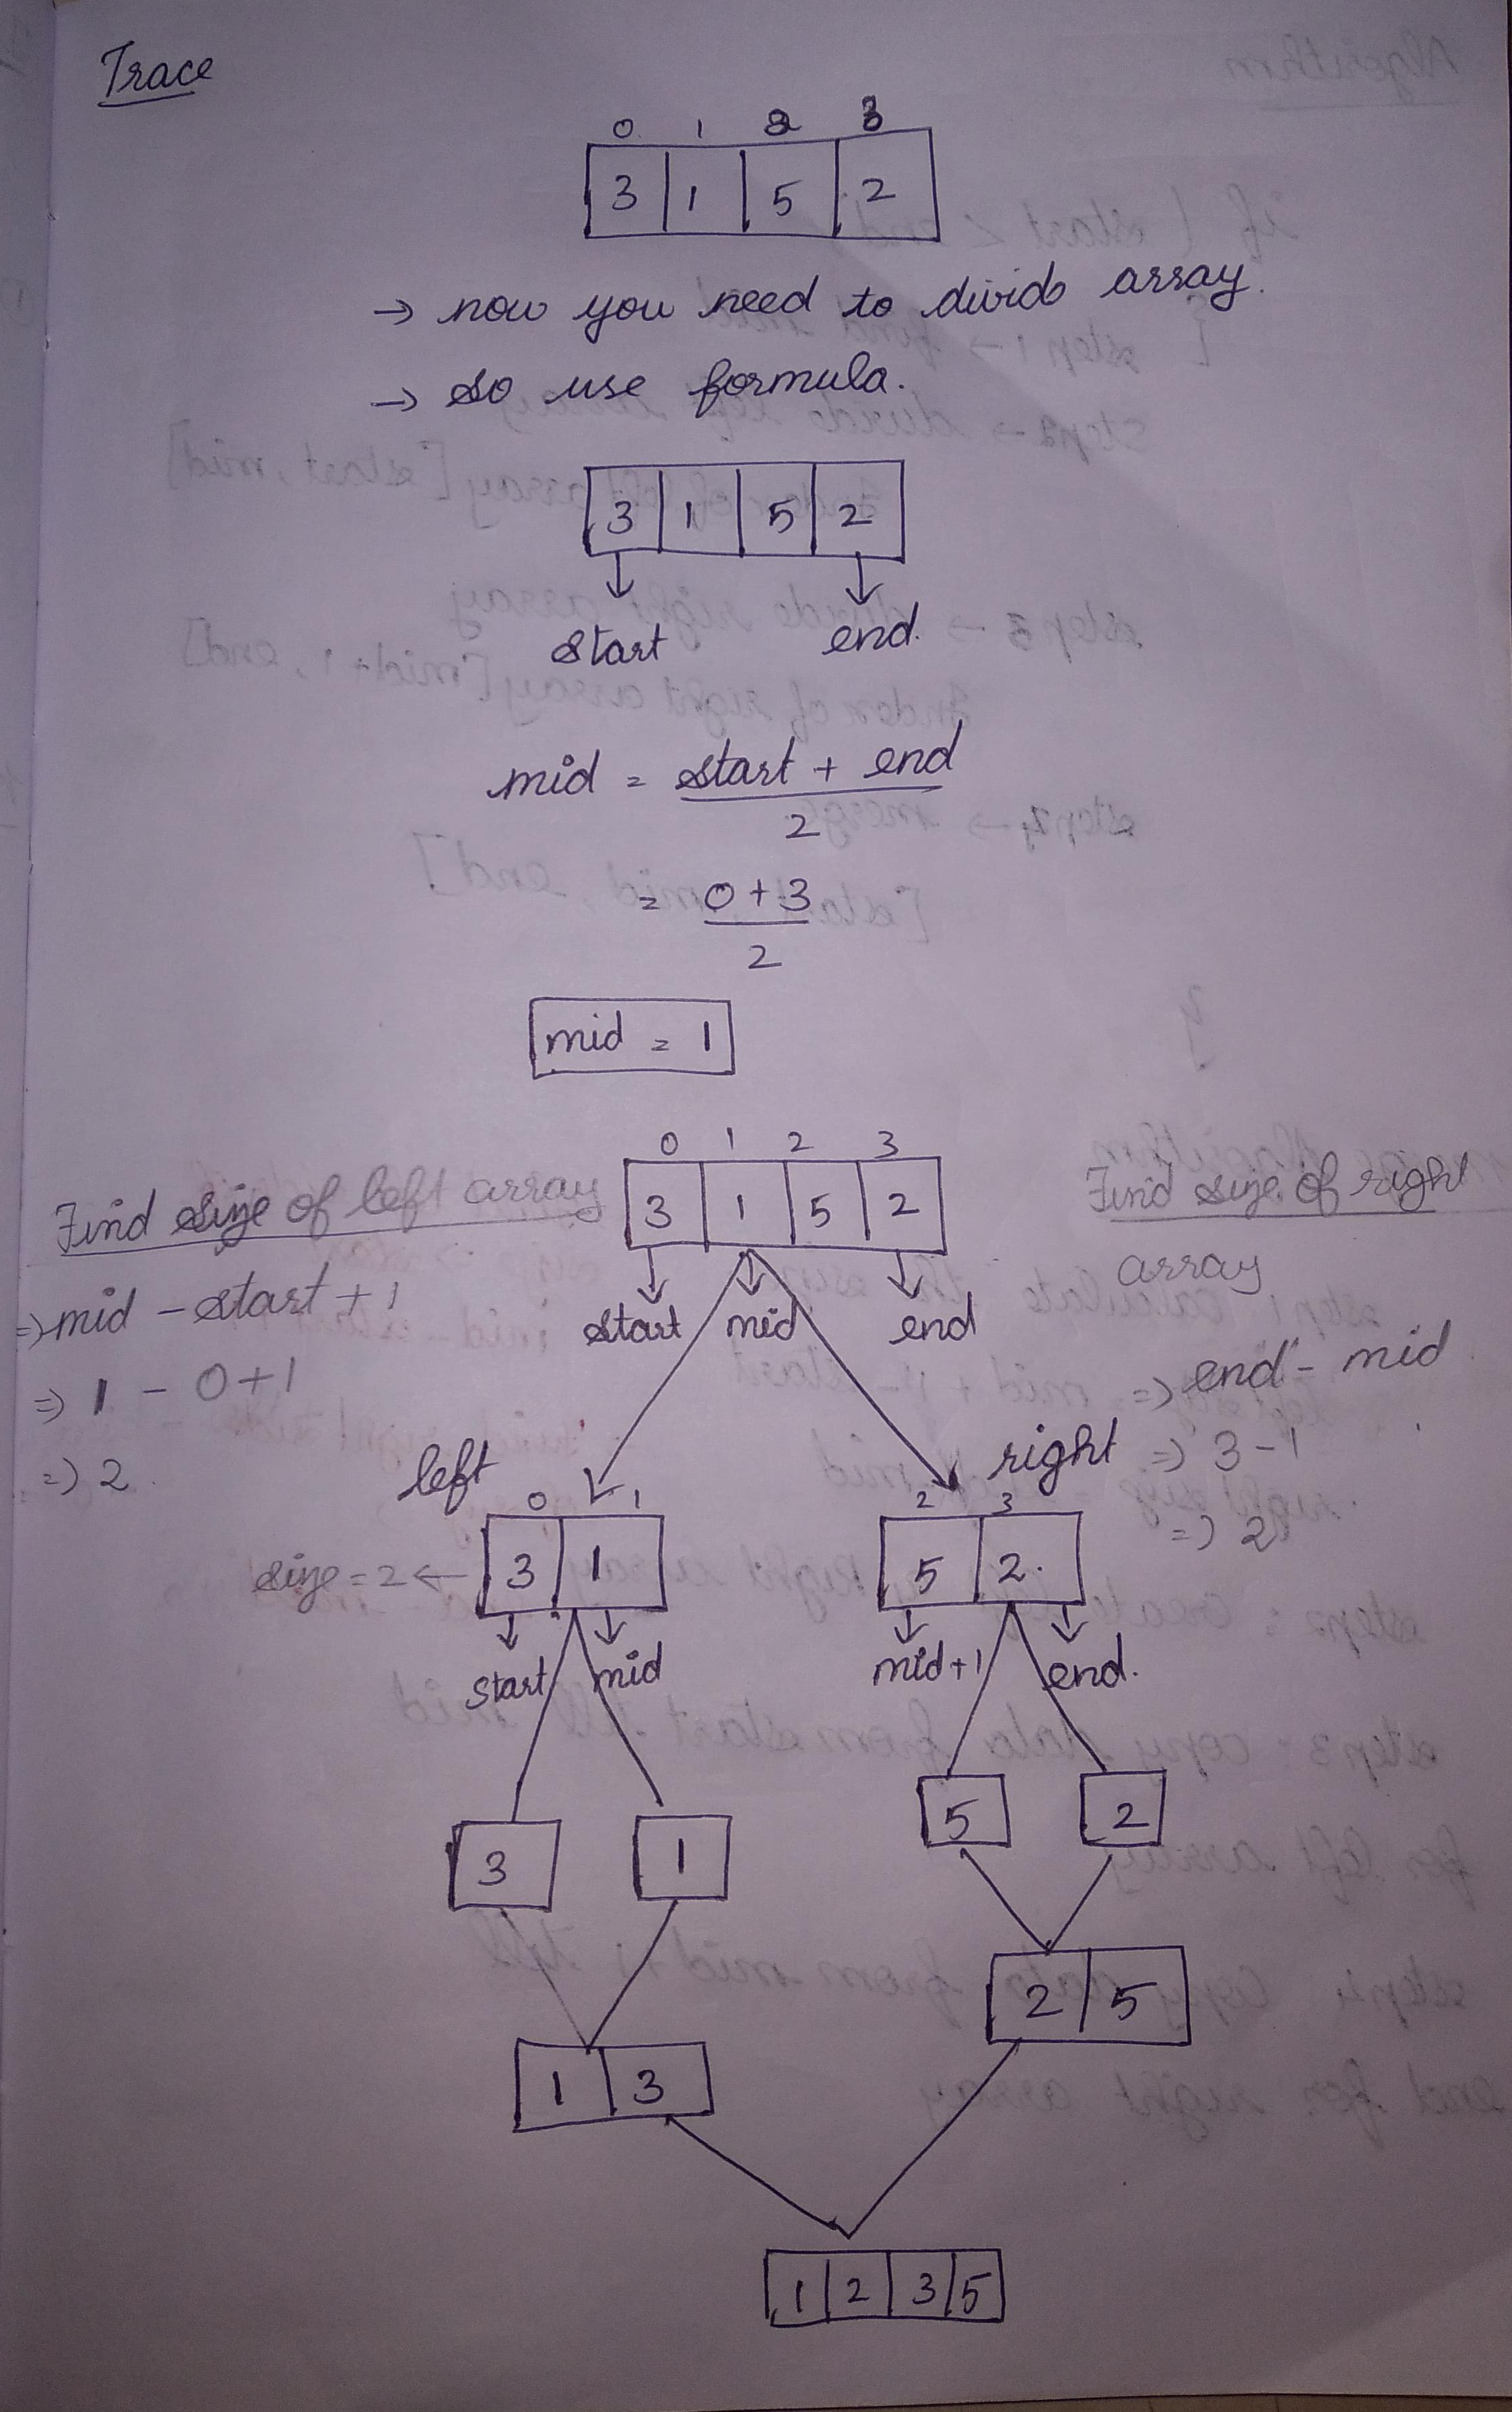 Trace
0 1 2 3
3 1 5 2
→ now you need to divide array.
→ so use formula.
3 1 5 2
start end.
mid = start + end
2
= 0 + 3
2
mid = 1
0 1 2 3
3 1 5 2
start mid end
Find size of left array
=> mid - start + 1
=> 1 - 0 + 1
=> 2.
Find size of right
array
=> end - mid
=> 3 - 1
=> 2
left
0 1
size = 2 ← 3 1
start mid
right
2 3
5 2.
mid+1 end.
3 1
5 2
2 5
1 3
1 2 3 5